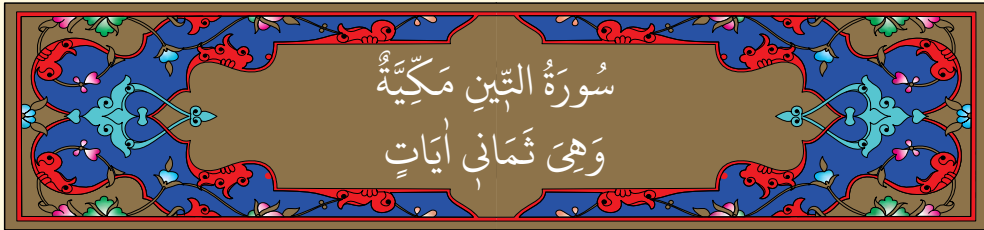 سُورَةُ التّ۪ينِ مَكِّيَّةٌ
وَهِيَ ثَمَان۪ى اٰيَاتٍ